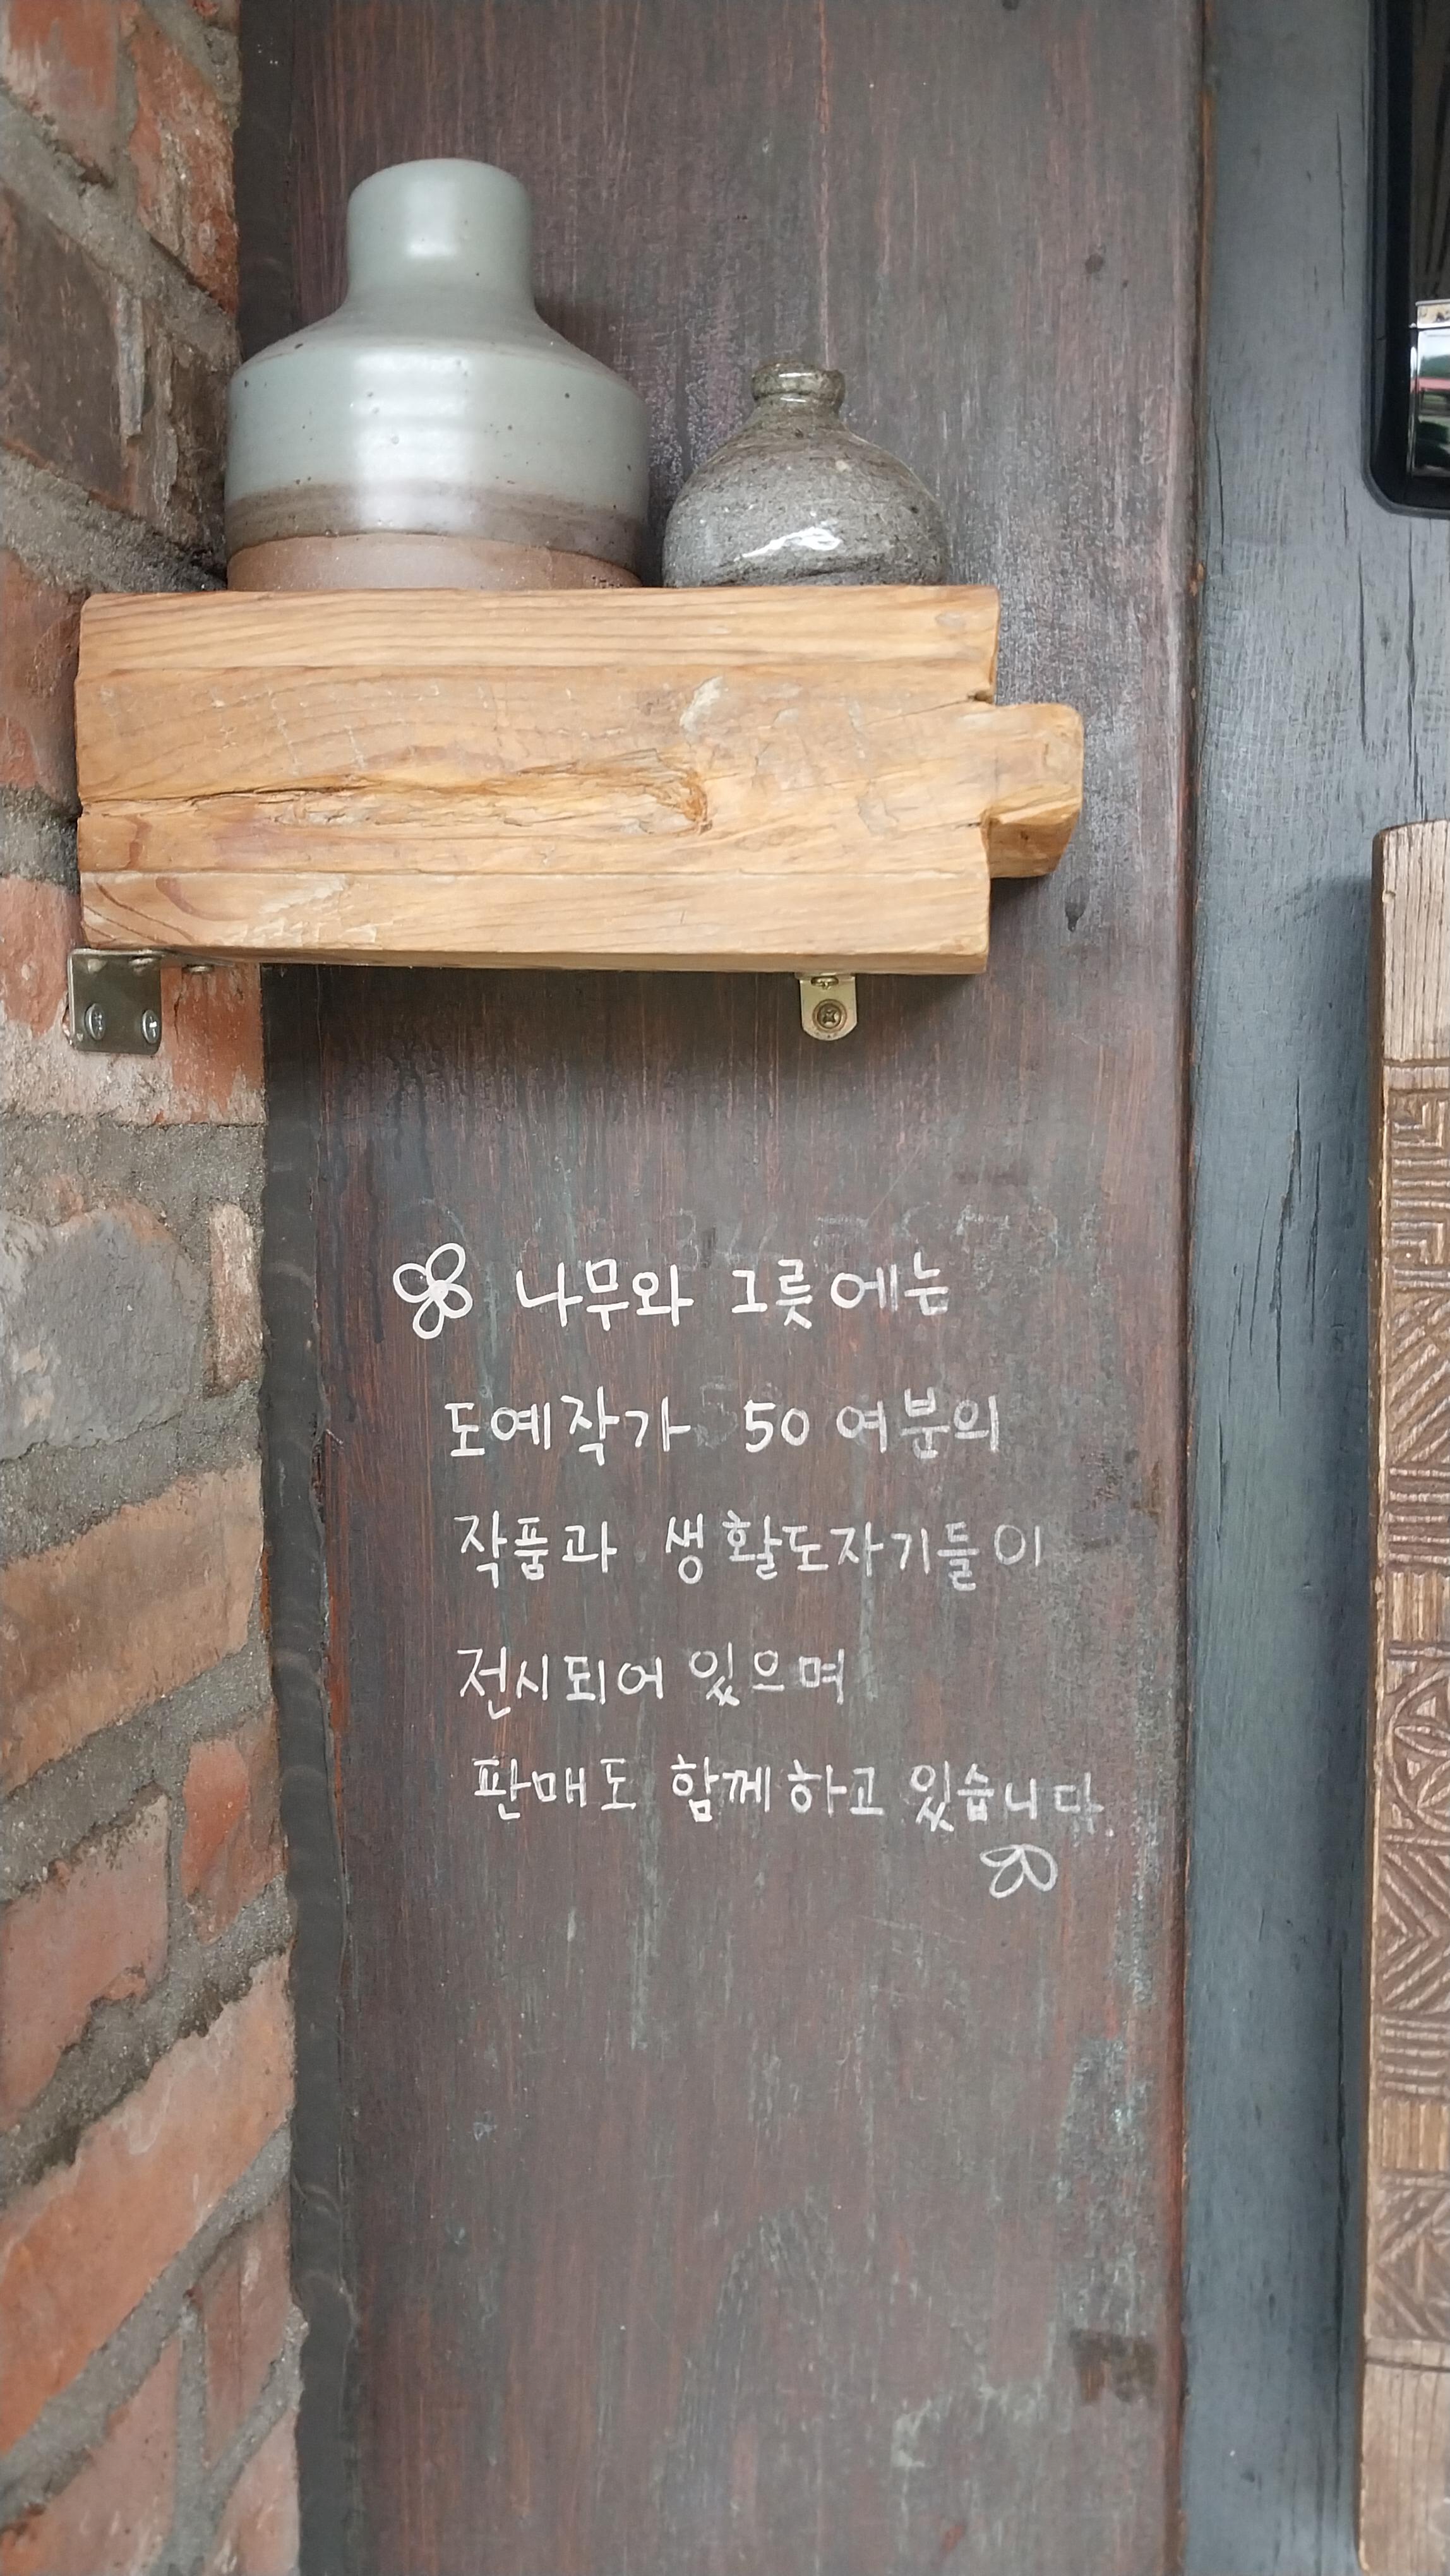 나무와 그릇에는
도예작가 50여분의
작품과 생활도자기들이
전시되어 있으며
판매도 함께하고 있습니다.